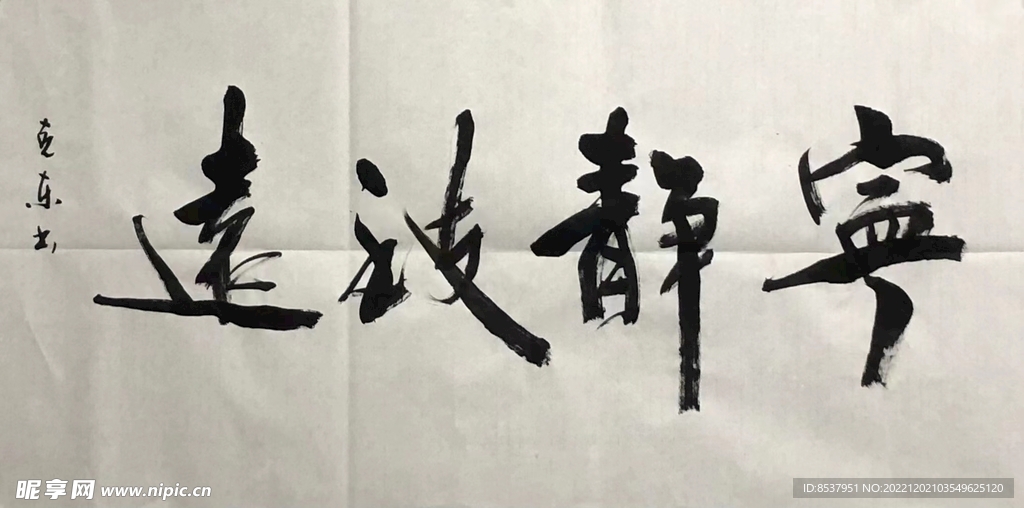 寧靜致遠
克东书
昵享网 www.nipic.cn
ID:8537951 NO:20221202103549625120